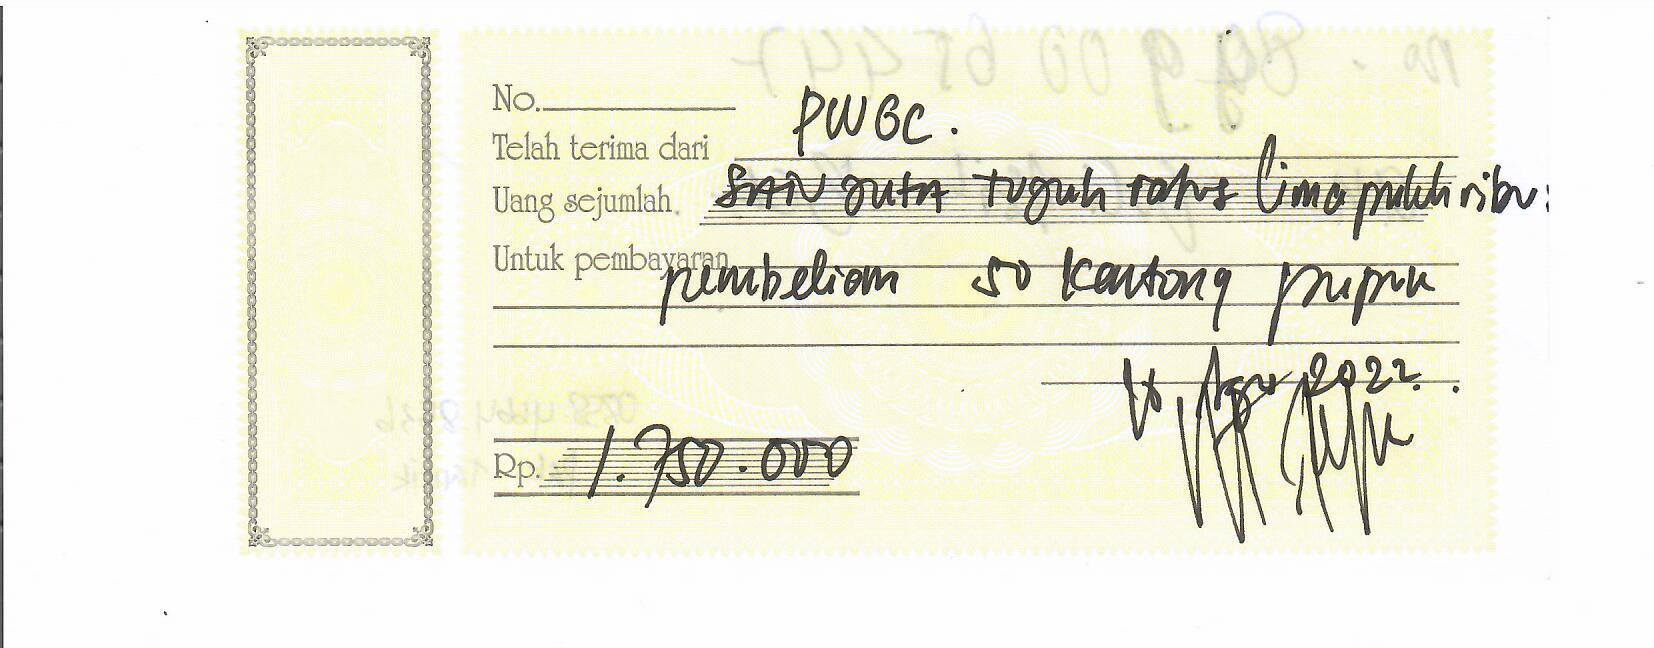 No.
Telah terima dari PWGC.
Uang sejumlah. SATU JUTA tujuh ratus lima puluh ribu:
Untuk pembayaran pembelian 50 kantong pupuk
Agu 2022.
Rp. 1.750.000